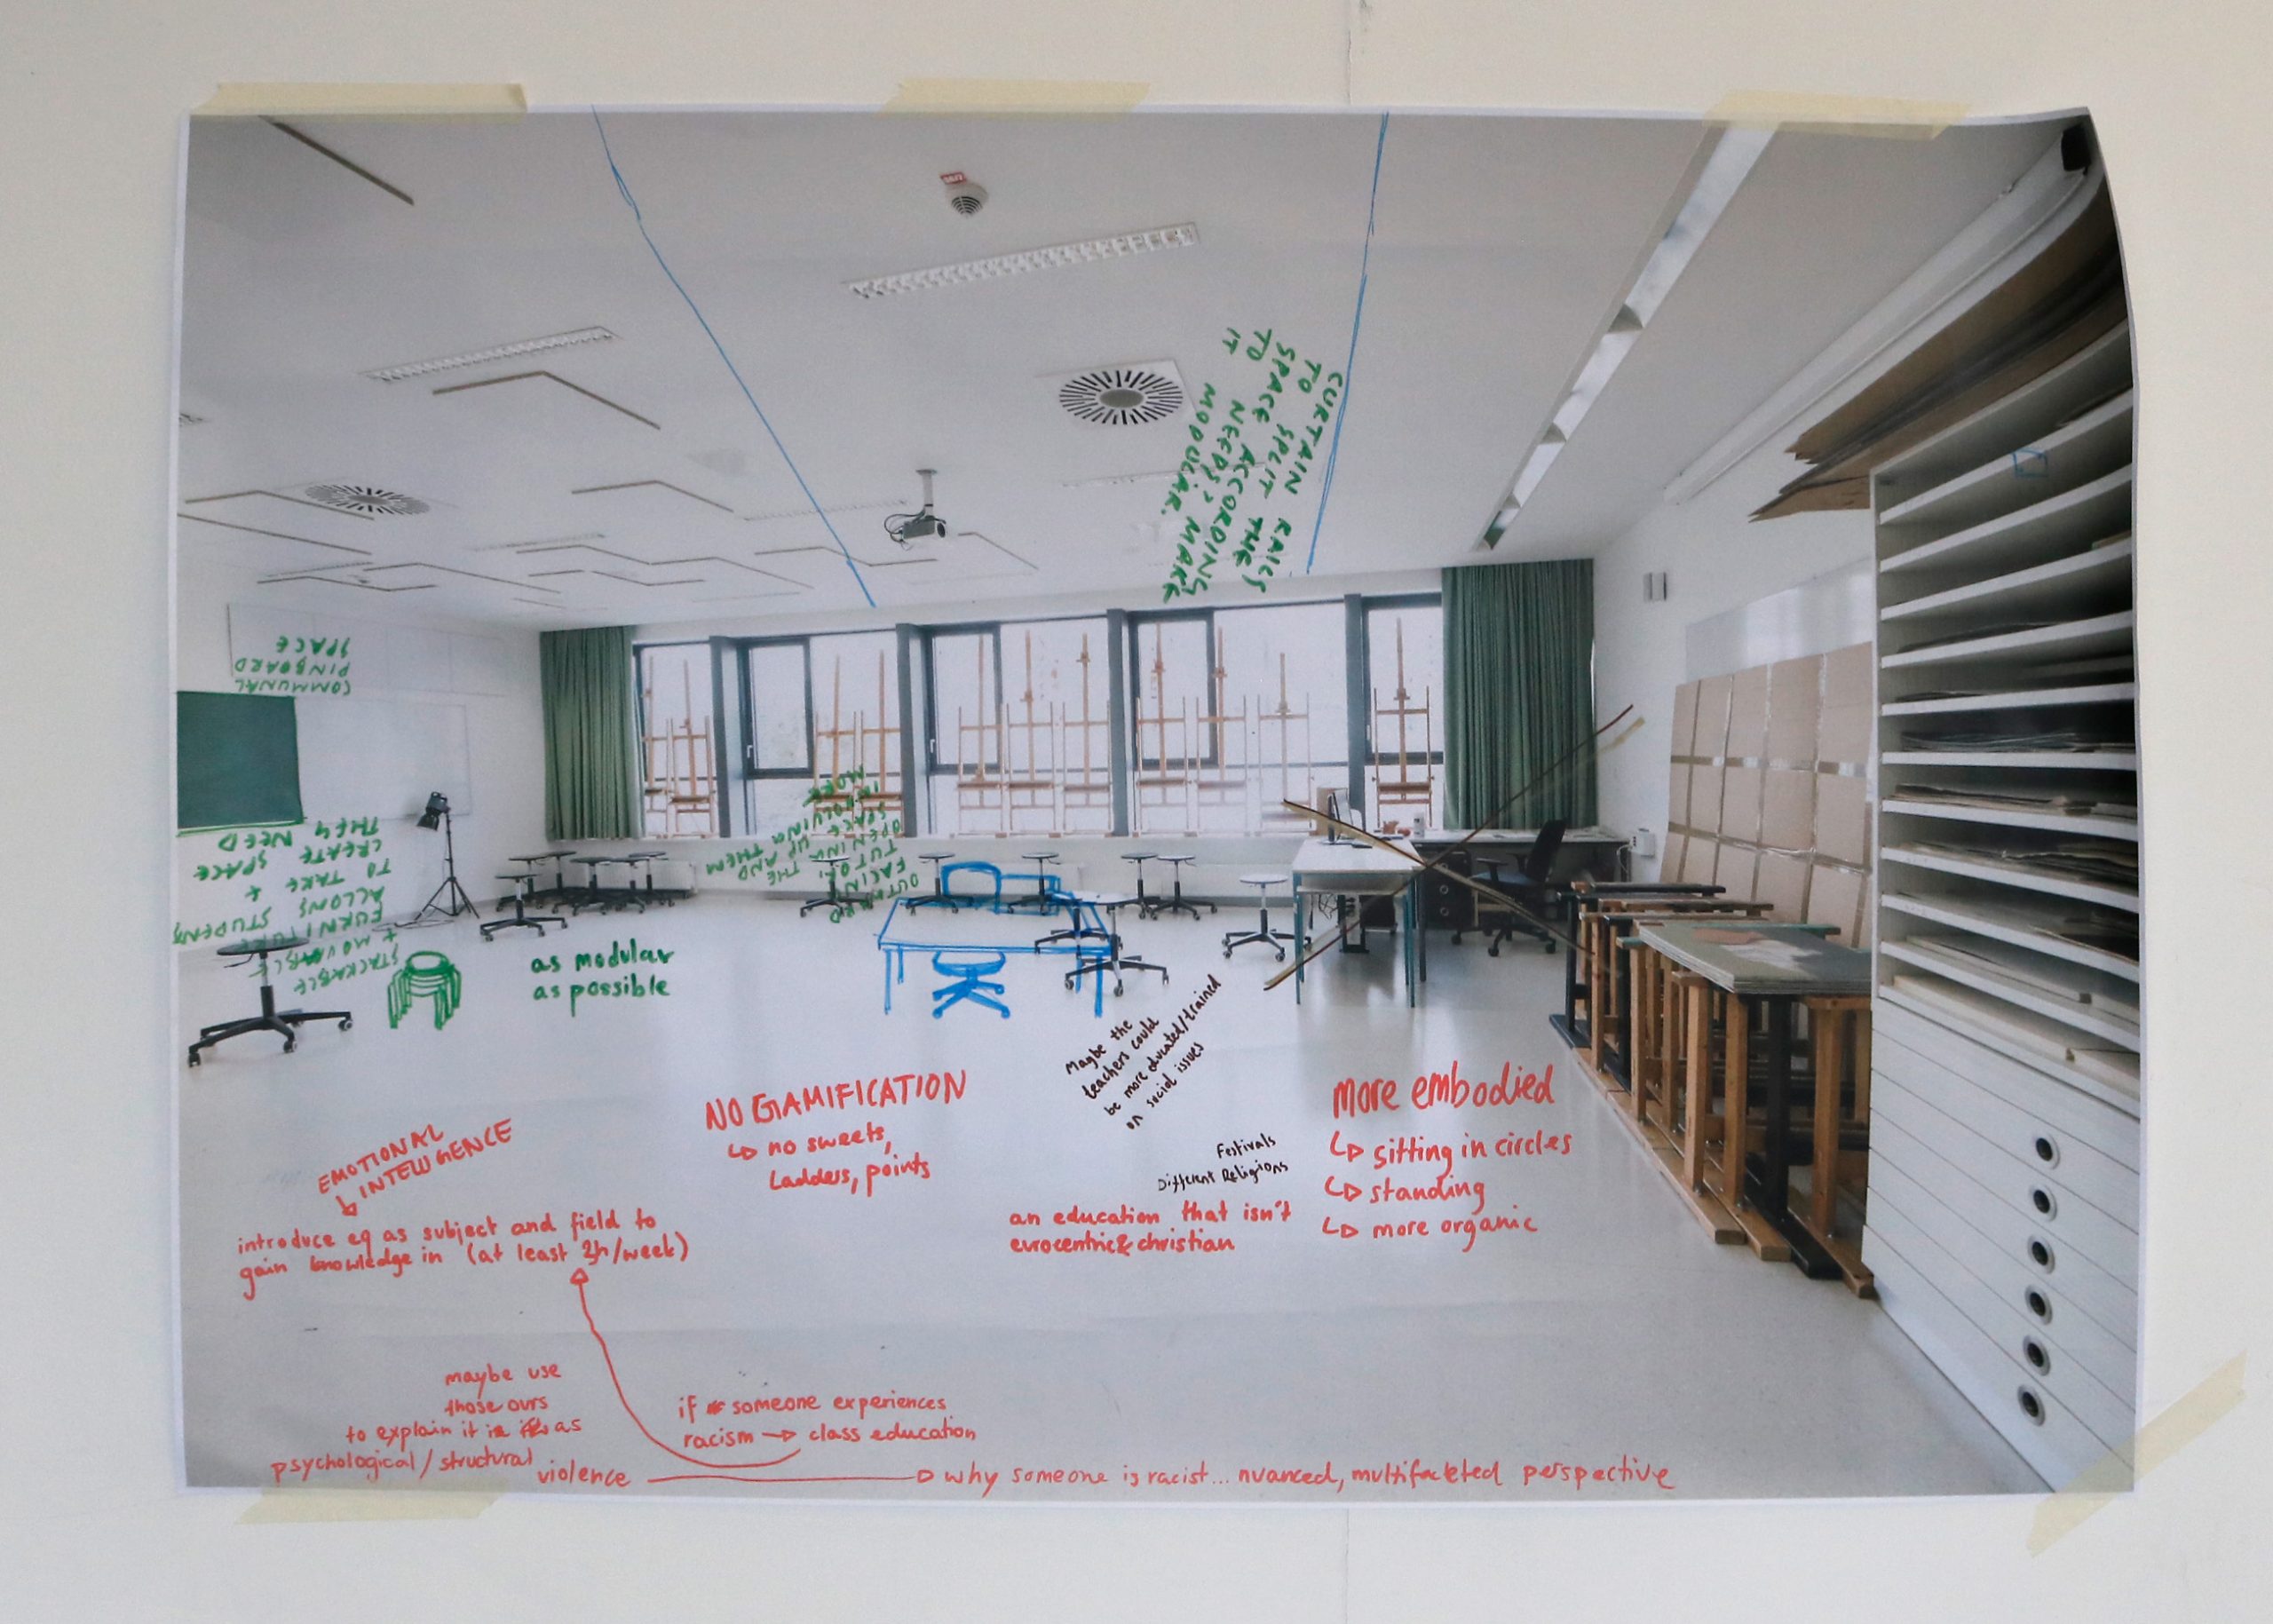 CURTAIN RAILS
TO SPLIT THE
SPACE ACCORDING
TO NEEDS, MAKE
IT MODULAR.
COMMUNAL
PINBOARD
SPACE
STACKABLE
+ MOVABLE
FURNITURE
ALLOWS STUDENTS
TO TAKE +
CREATE SPACE
THEY NEED
OUTWARD
FACING
OPENING UP THE
SPACE AND
INVOLVING THEM
MORE
as modular
as possible
Maybe the
teachers could
be more educated/trained
on social issues
NO GAMIFICATION
no sweets,
Ladders, points
more embodied
sitting in circles
standing
more organic
Festivals
Different Religions
an education that isn't
eurocentric & christian
EMOTIONAL
INTELLIGENCE
introduce eq as subject and field to
gain knowledge in (at least 2h/week)
maybe use
those ours
to explain it as
psychological/structural
violence
if someone experiences
racism → class education
why someone is racist... nuanced, multifaceted perspective